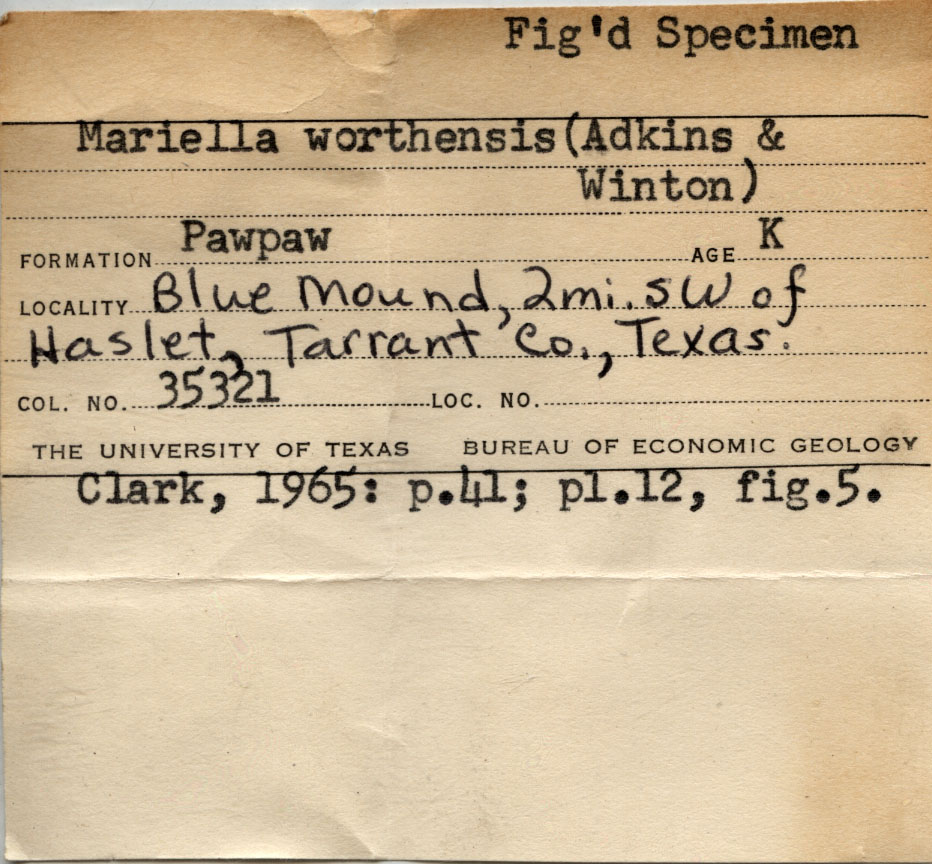 Fig'd Specimen
Mariella worthensis(Adkins &
Winton)
FORMATION Pawpaw AGE K
LOCALITY Blue Mound, 2mi. SW of
Haslet, Tarrant Co., Texas.
COL. NO. 35321 LOC. NO.
THE UNIVERSITY OF TEXAS BUREAU OF ECONOMIC GEOLOGY
Clark, 1965: p.41; pl.12, fig.5.